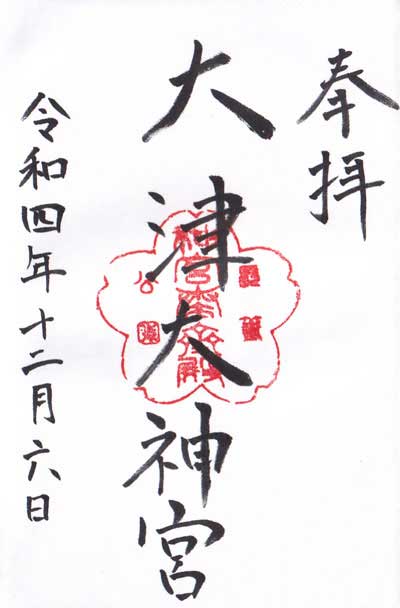 奉拝
大津大神宮
令和四年十二月六日